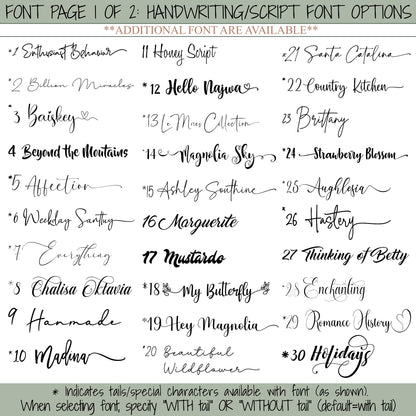 FONT PAGE 1 OF 2: HANDWRITING/SCRIPT FONT OPTIONS
**ADDITIONAL FONT ARE AVAILABLE**
*1 Enthusiast Behaviour
*2 Billion Miracles
*3 Baiskey
4 Beyond the Mountains
*5 Affection
*6 Weekday Santhy
*7 Everything
*8 Chalisa Oktavia
9 Hanmade
*10 Madina
11 Honey Script
*12 Hello Najwa
*13 La Mires Collection
*14 Magnolia Sky
*15 Ashley Southine
16 Marguerite
17 Mustardo
*18 My Butterfly
*19 Hey Magnolia
*20 Beautiful
Wildflower
*21 Santa Catalina
*22 Country Kitchen
23 Brittany
*24 Strawberry Blossom
*25 Aughlesia
*26 Hastery
27 Thinking of Betty
*28 Enchanting
*29 Romance History
*30 Holidays
* Indicates tails/special characters available with font (as shown).
When selecting font, specify "WITH tail" OR "WITHOUT tail" (default=with tail)